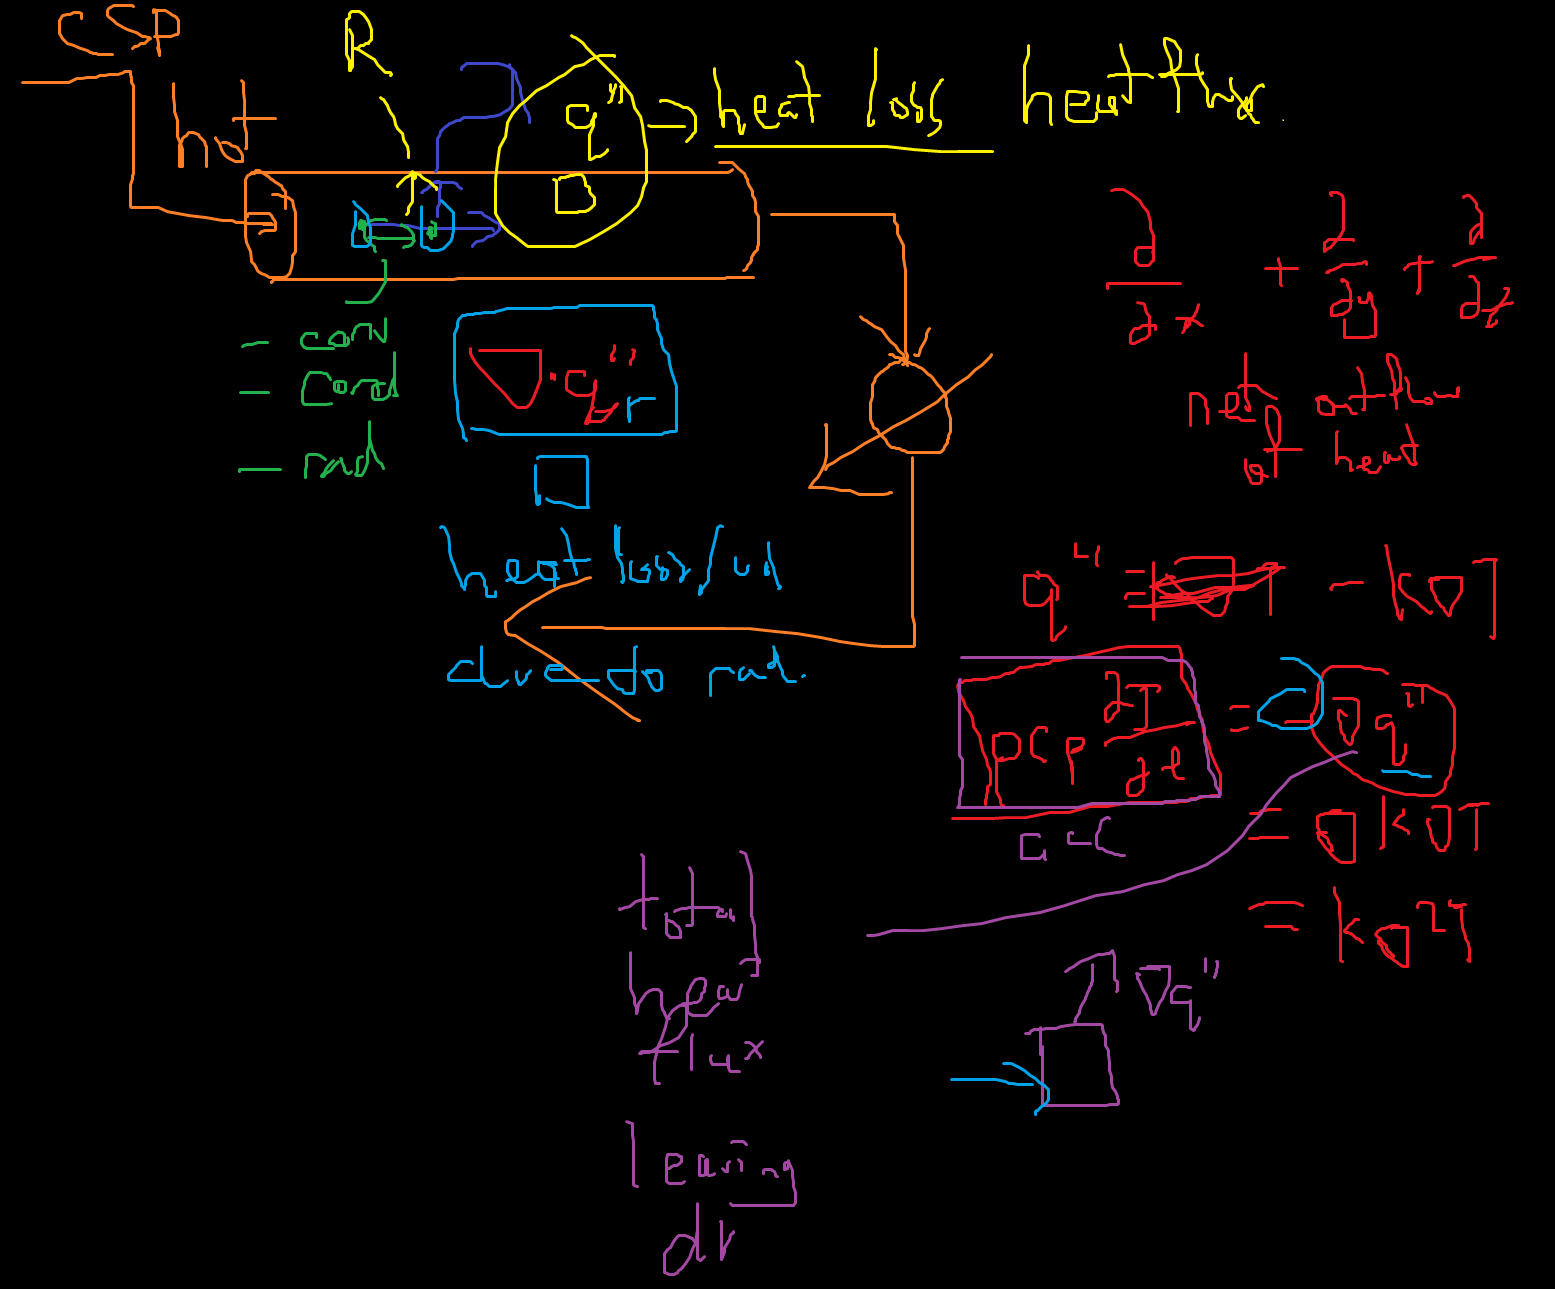 CSP
R
hot
q" → heat loss heat flux
- conv
- Cond
- rad
∇·q"r
heat loss/vol
due to rad.
∂/∂x + ∂/∂y + ∂/∂z
net outflow
of heat
q" = -k∇T
ρCp ∂T/∂t = -∇q"
= ∇k∇T
= k∇²T
total
heat
flux
leaving
dV
∇q"